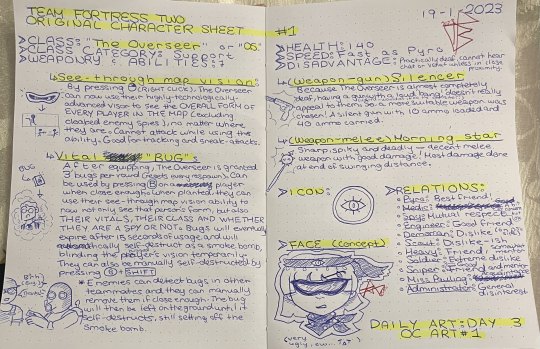 TEAM FORTRESS TWO
ORIGINAL CHARACTER SHEET
CLASS: "The Overseer" or "OS"
CLASS CATEGORY: Support
WEAPONRY & ABILITIES:
See-through map vision:
By pressing (RIGHT CLICK), The Overseer
can now use their highly-technologically-
advanced visor to see the OVERALL FORM OF
EVERY PLAYER IN THE MAP (including
cloaked enemy Spies), no matter where
they are. Cannot attack while using this
ability. Good for tracking and sneak-attacks.
Vital "BUG":
After equipping, The Overseer is granted
3 bugs per round (resets every respawn). Can
be used by pressing on player
when close enough. When planted, they can
use their see-through map vision ability to
now not only see that person's form, but also
THEIR VITALS, THEIR CLASS AND WHETHER
THEY ARE A SPY OR NOT. Bugs will eventually
expire after 15 seconds of usage, and will
self-destruct as a smoke bomb,
blinding the player's vision temporarily.
They can also be manually self-destructed by
pressing + SHIFT
* Enemies can detect bugs in other
teammates, and they can manually
remove them if close enough. The bug
will then be left on the ground until it
self-destructs, still setting off the
smoke bomb.
BUG
#1
19-1-2023
HEALTH: 140
SPEED: Fast as Pyro
DISADVANTAGE: Practically deaf, cannot hear
chat or voice unless in close
proximity.
(weapon-gun) Silencer
Because The Overseer is almost completely
deaf, having a gun with a loud bang doesn't really
appeal to them. So a more suitable weapon was
chosen! A silent gun with 10 ammo loaded and
40 ammo carried.
(weapon-melee) Morning star
Sharp, spiky and deadly - decent melee
weapon with good damage! Most damage done
at end of swinging distance.
ICON:
RELATIONS:
Pyro: Best friend
Medic:
Spy: Mutual respect
Engineer: Good friend
Demoman: Dislike
Scout: Dislike-ish
Heavy: Friend,
Soldier: Extreme dislike
Sniper: Friend
Miss Pauling:
Administrator: General
disinterest
FACE (concept)
(very
ugly, ew...
DAILY ART: DAY 3
OC ART #1